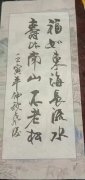 福如東海長流水
壽比南山不老松
壬寅年仲秋